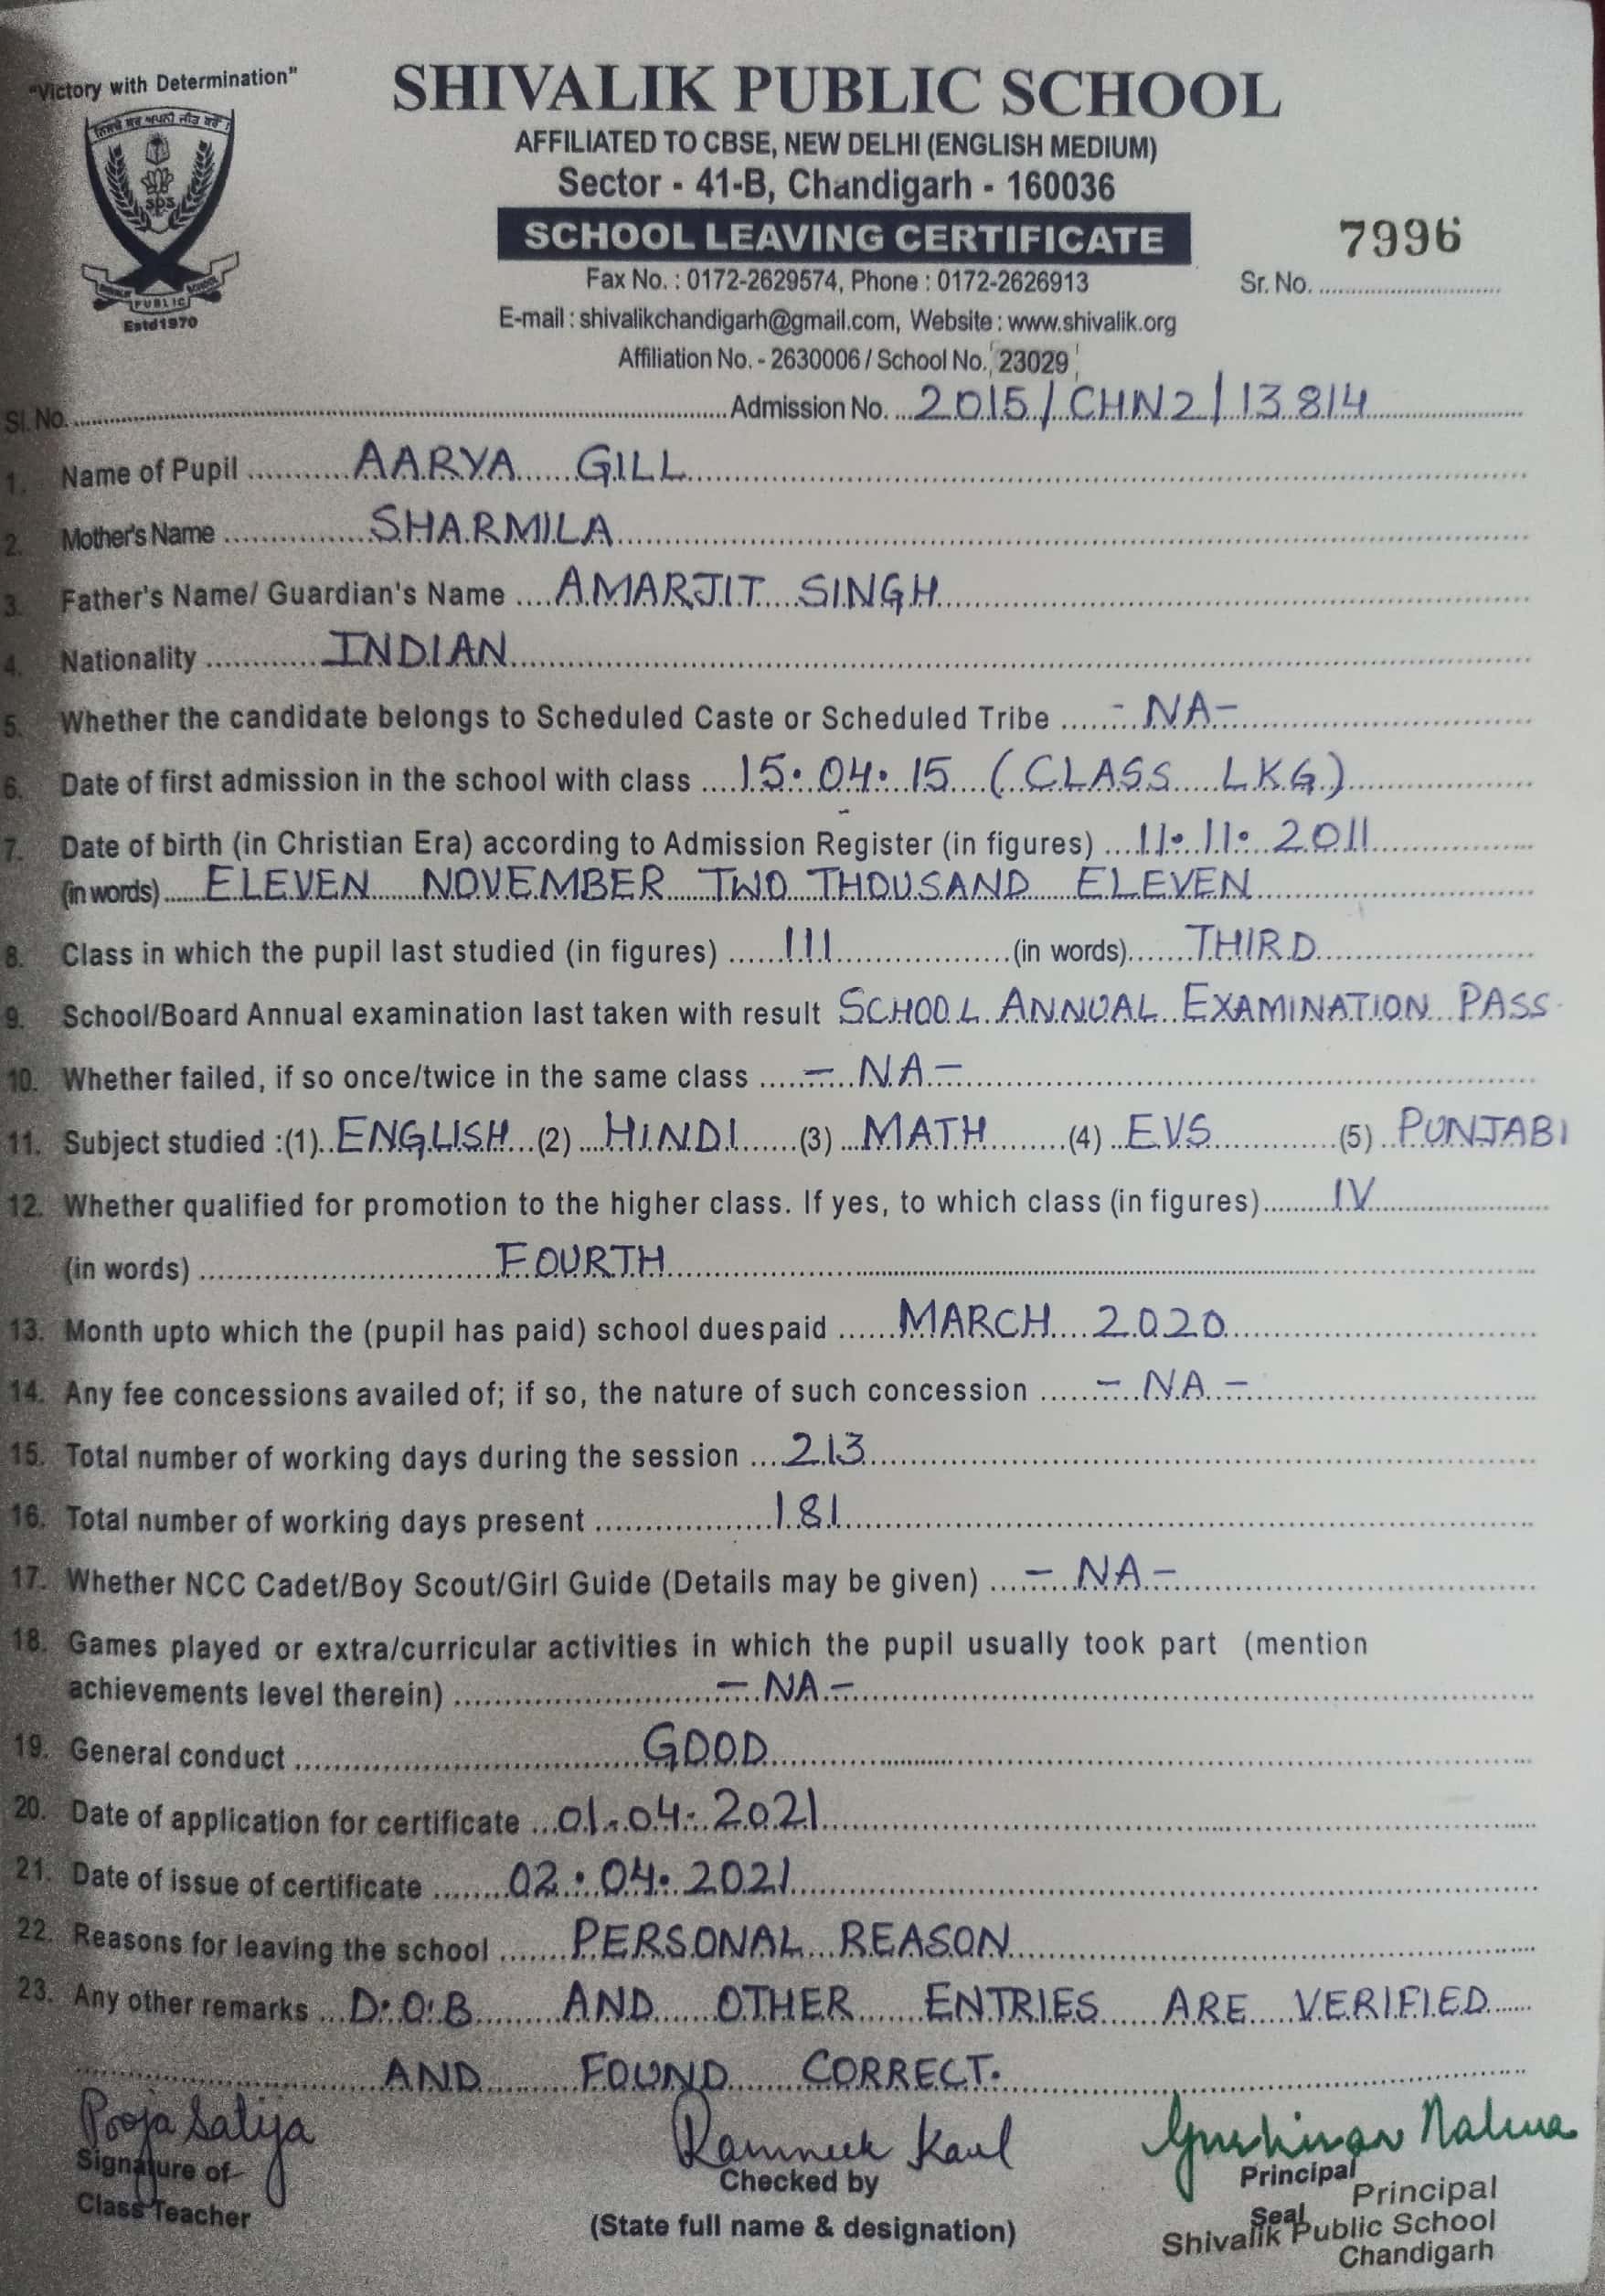 "Victory with Determination"
SHIVALIK PUBLIC SCHOOL
AFFILIATED TO CBSE, NEW DELHI (ENGLISH MEDIUM)
Sector - 41-B, Chandigarh - 160036
SCHOOL LEAVING CERTIFICATE
7996
SPS
PUBLIC SCHOOL
Estd1970
Fax No. : 0172-2629574, Phone : 0172-2626913
Sr. No. ..............................
E-mail : shivalikchandigarh@gmail.com, Website : www.shivalik.org
Affiliation No. - 2630006 / School No. 23029
Sl. No. .............................. Admission No. ... 2015/CHN2/13814
1. Name of Pupil ........... AARYA GILL
2. Mother's Name ............... SHARMILA
3. Father's Name/ Guardian's Name .... AMARJIT SINGH
4. Nationality ............ INDIAN
5. Whether the candidate belongs to Scheduled Caste or Scheduled Tribe ........ - NA -
6. Date of first admission in the school with class .... 15.04.15 (CLASS LKG)
7. Date of birth (in Christian Era) according to Admission Register (in figures) .... 11.11.2011
(in words) ...... ELEVEN NOVEMBER TWO THOUSAND ELEVEN
8. Class in which the pupil last studied (in figures) ...... III .................. (in words) ....... THIRD
9. School/Board Annual examination last taken with result SCHOOL ANNUAL EXAMINATION PASS
10. Whether failed, if so once/twice in the same class ...... - NA -
11. Subject studied :(1) .. ENGLISH ... (2) .... HINDI ...... (3) ... MATH ........ (4) .. EVS ............ (5) .. PUNJABI
12. Whether qualified for promotion to the higher class. If yes, to which class (in figures) ......... IV
(in words) .............................. FOURTH
13. Month upto which the (pupil has paid) school dues paid ...... MARCH 2020
14. Any fee concessions availed of; if so, the nature of such concession ...... - NA -
15. Total number of working days during the session ... 213
16. Total number of working days present ................... 181
17. Whether NCC Cadet/Boy Scout/Girl Guide (Details may be given) .... - NA -
18. Games played or extra/curricular activities in which the pupil usually took part (mention
achievements level therein) ........................... - NA -
19. General conduct .................................... GOOD
20. Date of application for certificate ... 01.04.2021
21. Date of issue of certificate ........ 02.04.2021
22. Reasons for leaving the school ....... PERSONAL REASON
23. Any other remarks ... D.O.B AND OTHER ENTRIES ARE VERIFIED
AND FOUND CORRECT.
Pooja Satija
Ramneek Kaul
Signature of
Class Teacher
Checked by
(State full name & designation)
Principal
Seal
Principal
Shivalik Public School
Chandigarh